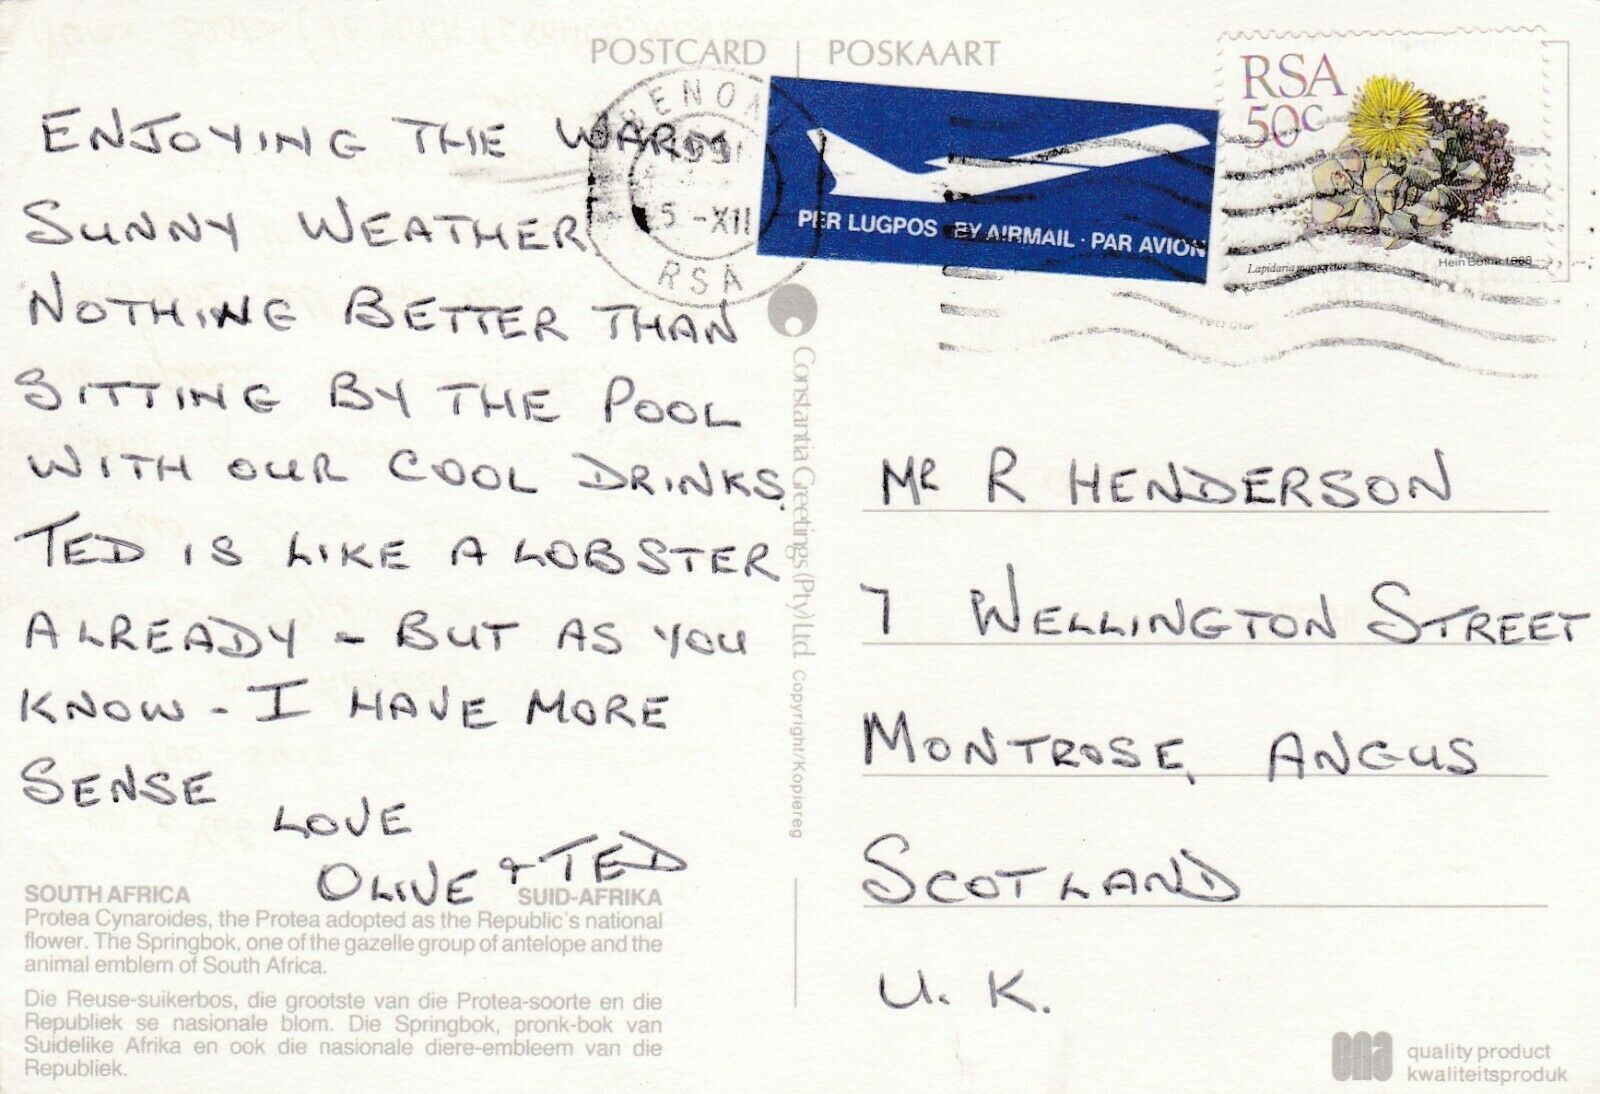 POSTCARD | POSKAART
ENJOYING THE WARM
SUNNY WEATHER.
NOTHING BETTER THAN
SITTING BY THE POOL
WITH OUR COOL DRINKS.
TED IS LIKE A LOBSTER
ALREADY - BUT AS YOU
KNOW - I HAVE MORE
SENSE
LOVE
OLIVE & TED
SOUTH AFRICA SUID-AFRIKA
Protea Cynaroides, the Protea adopted as the Republic's national
flower. The Springbok, one of the gazelle group of antelope and the
animal emblem of South Africa.
Die Reuse-suikerbos, die grootste van die Protea-soorte en die
Republiek se nasionale blom. Die Springbok, pronk-bok van
Suidelike Afrika en ook die nasionale diere-embleem van die
Republiek.
Constantia Greetings (Pty) Ltd. Copyright/Kopiereg
BENONI
-XII
RSA
PER LUGPOS · BY AIRMAIL · PAR AVION
RSA
50c
Lapidaria
Hein Botha 1988
MR R HENDERSON
7 WELLINGTON STREET
MONTROSE, ANGUS
SCOTLAND
U. K.
cna
quality product
kwaliteitsproduk